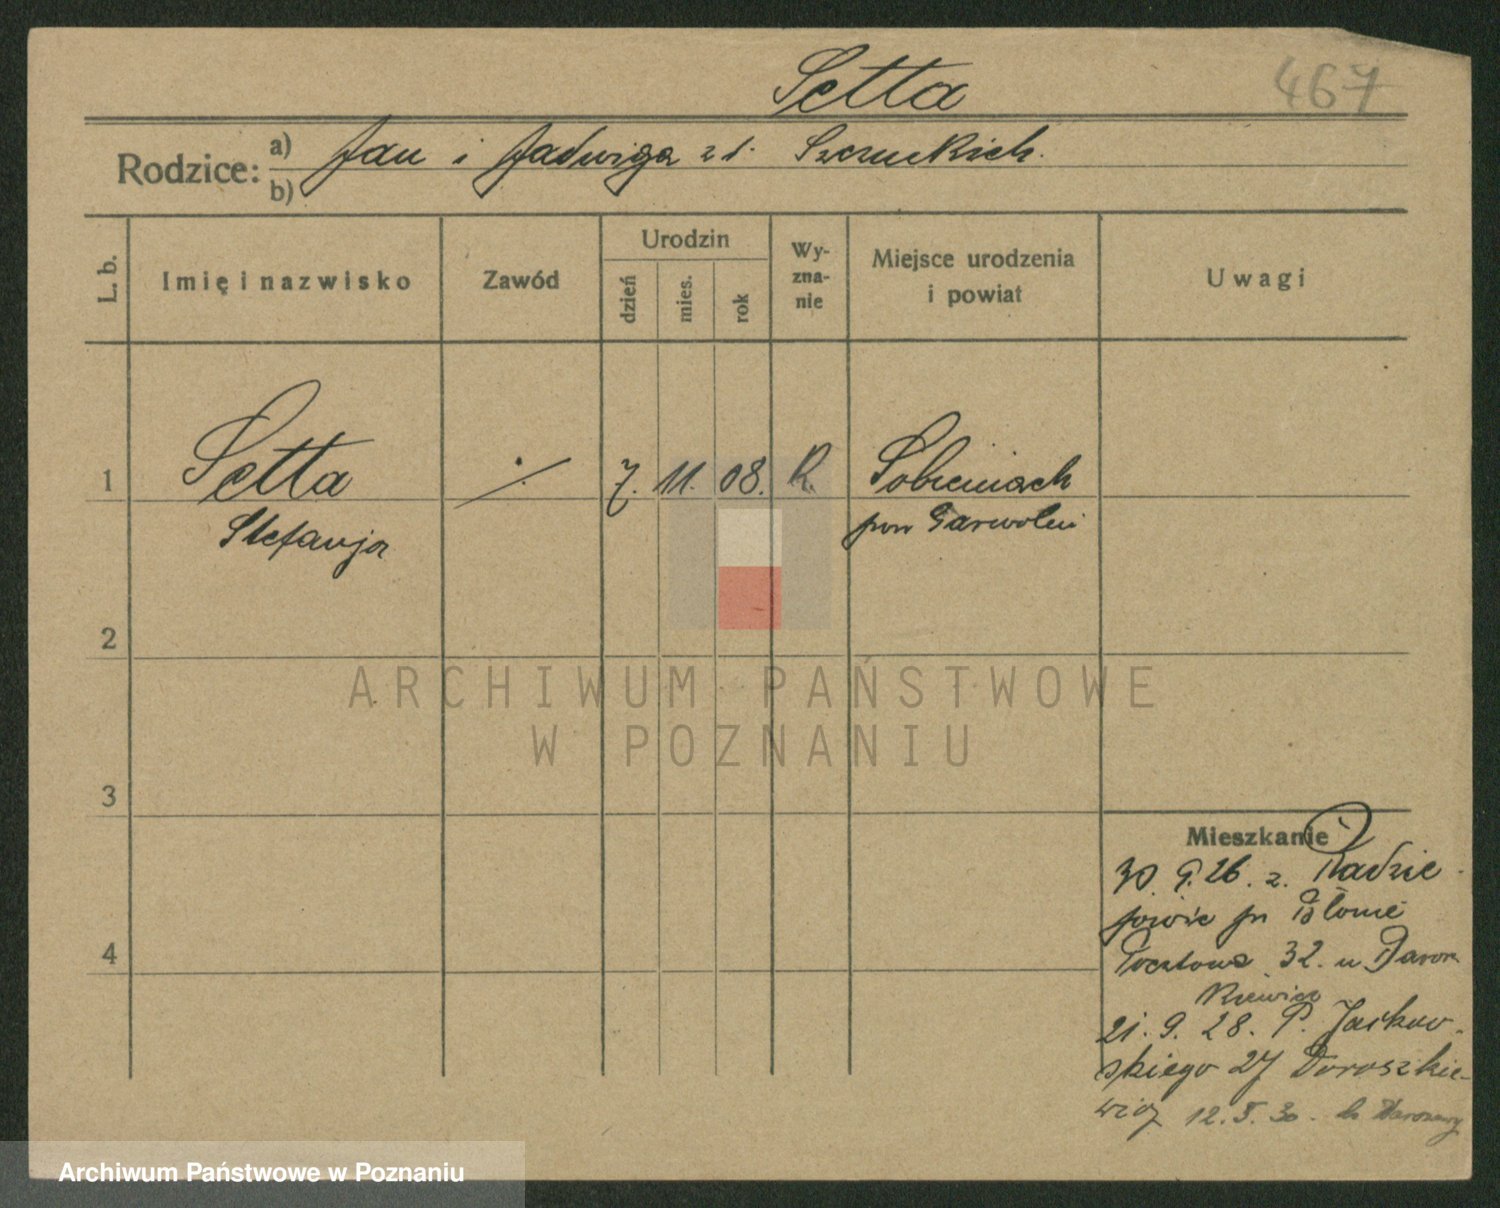 Setta
467
Rodzice:
a) Jan i Jadwiga z d. Szczuckich.
b)
L. b.
Imię i nazwisko
Zawód
Urodzin
dzień
mies.
rok
Wy-
zna-
nie
Miejsce urodzenia
i powiat
Uwagi
1
Setta
Stefanja
7. 11. 08. R.
Sobieniach
pow Garwolin
2
3
4
ARCHIWUM PAŃSTWOWE
W POZNANIU
Mieszkanie
30. 9. 26. z. Radzie
jowic pow Błonie
Pocztowa 32. u
21. 9. 28. P. Jackow-
skiego 27 Doroszkie-
wicz 12. 5. 30. do Warszawy
Archiwum Państwowe w Poznaniu